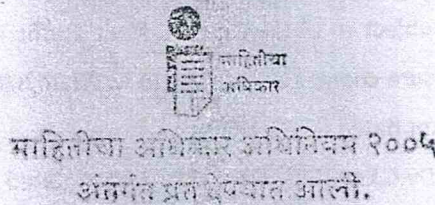 माहितीचा
अधिकार
माहितीचा अधिकार अधिनियम २००५
अंतर्गत प्रत देण्यात आली.